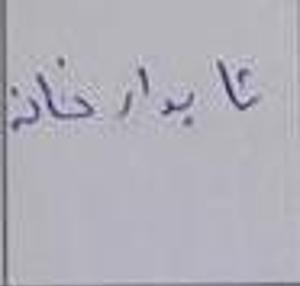 تابدار خانه